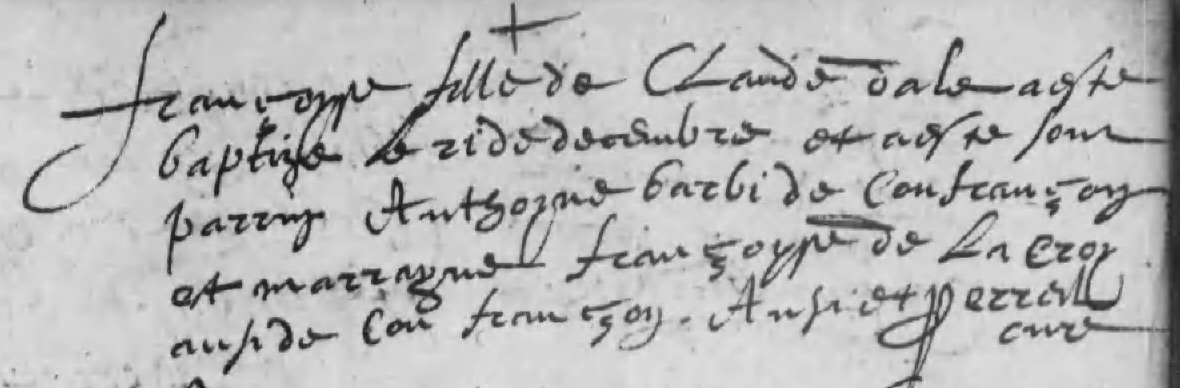 françoyse fille de Claude dale a este
baptize le 21 de decembre et a este son
parrin Anthoyne barbi de Confrançon
et marrayne françoyse de La Croy
ausi de Confrançon. Ausi et perrell
cure